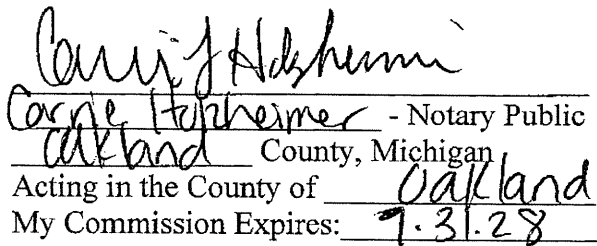 Carrie Holzheimer - Notary Public
Oakland County, Michigan
Acting in the County of Oakland
My Commission Expires: 7.31.28